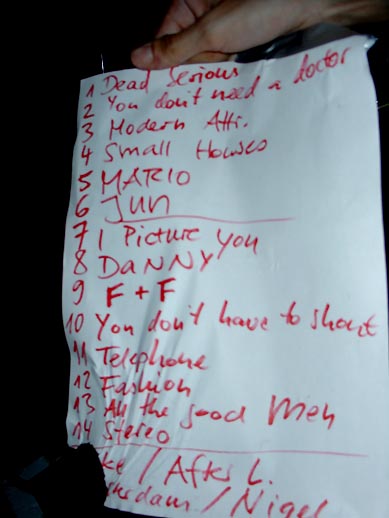 1 Dead Serious
2 You don't need a doctor
3 Modern Attr.
4 Small Houses
5 MARIO
6 JUN
7 I Picture You
8 DANNY
9 F + F
10 You don't have to shout
11 Telephone
12 Fashion
13 All the good Men
14 Stereo
/ After L.
/ Nigel